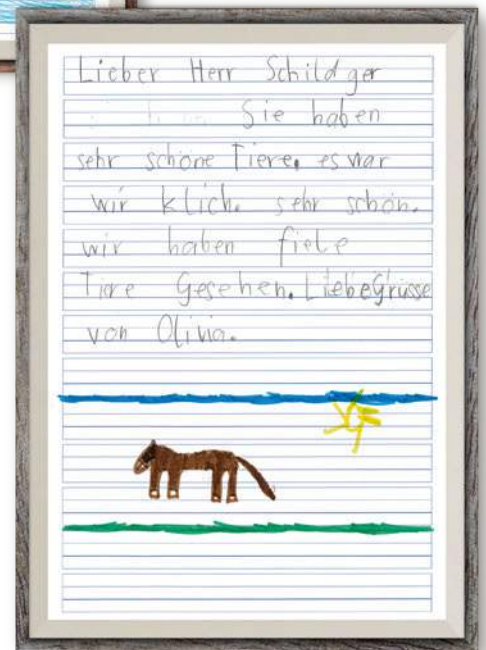 Lieber Herr Schildger
Sie haben
sehr schöne Tiere. es war
wir klich. sehr schön.
wir haben fiele
Tiere Gesehen. LiebeGrüsse
von Olivia.